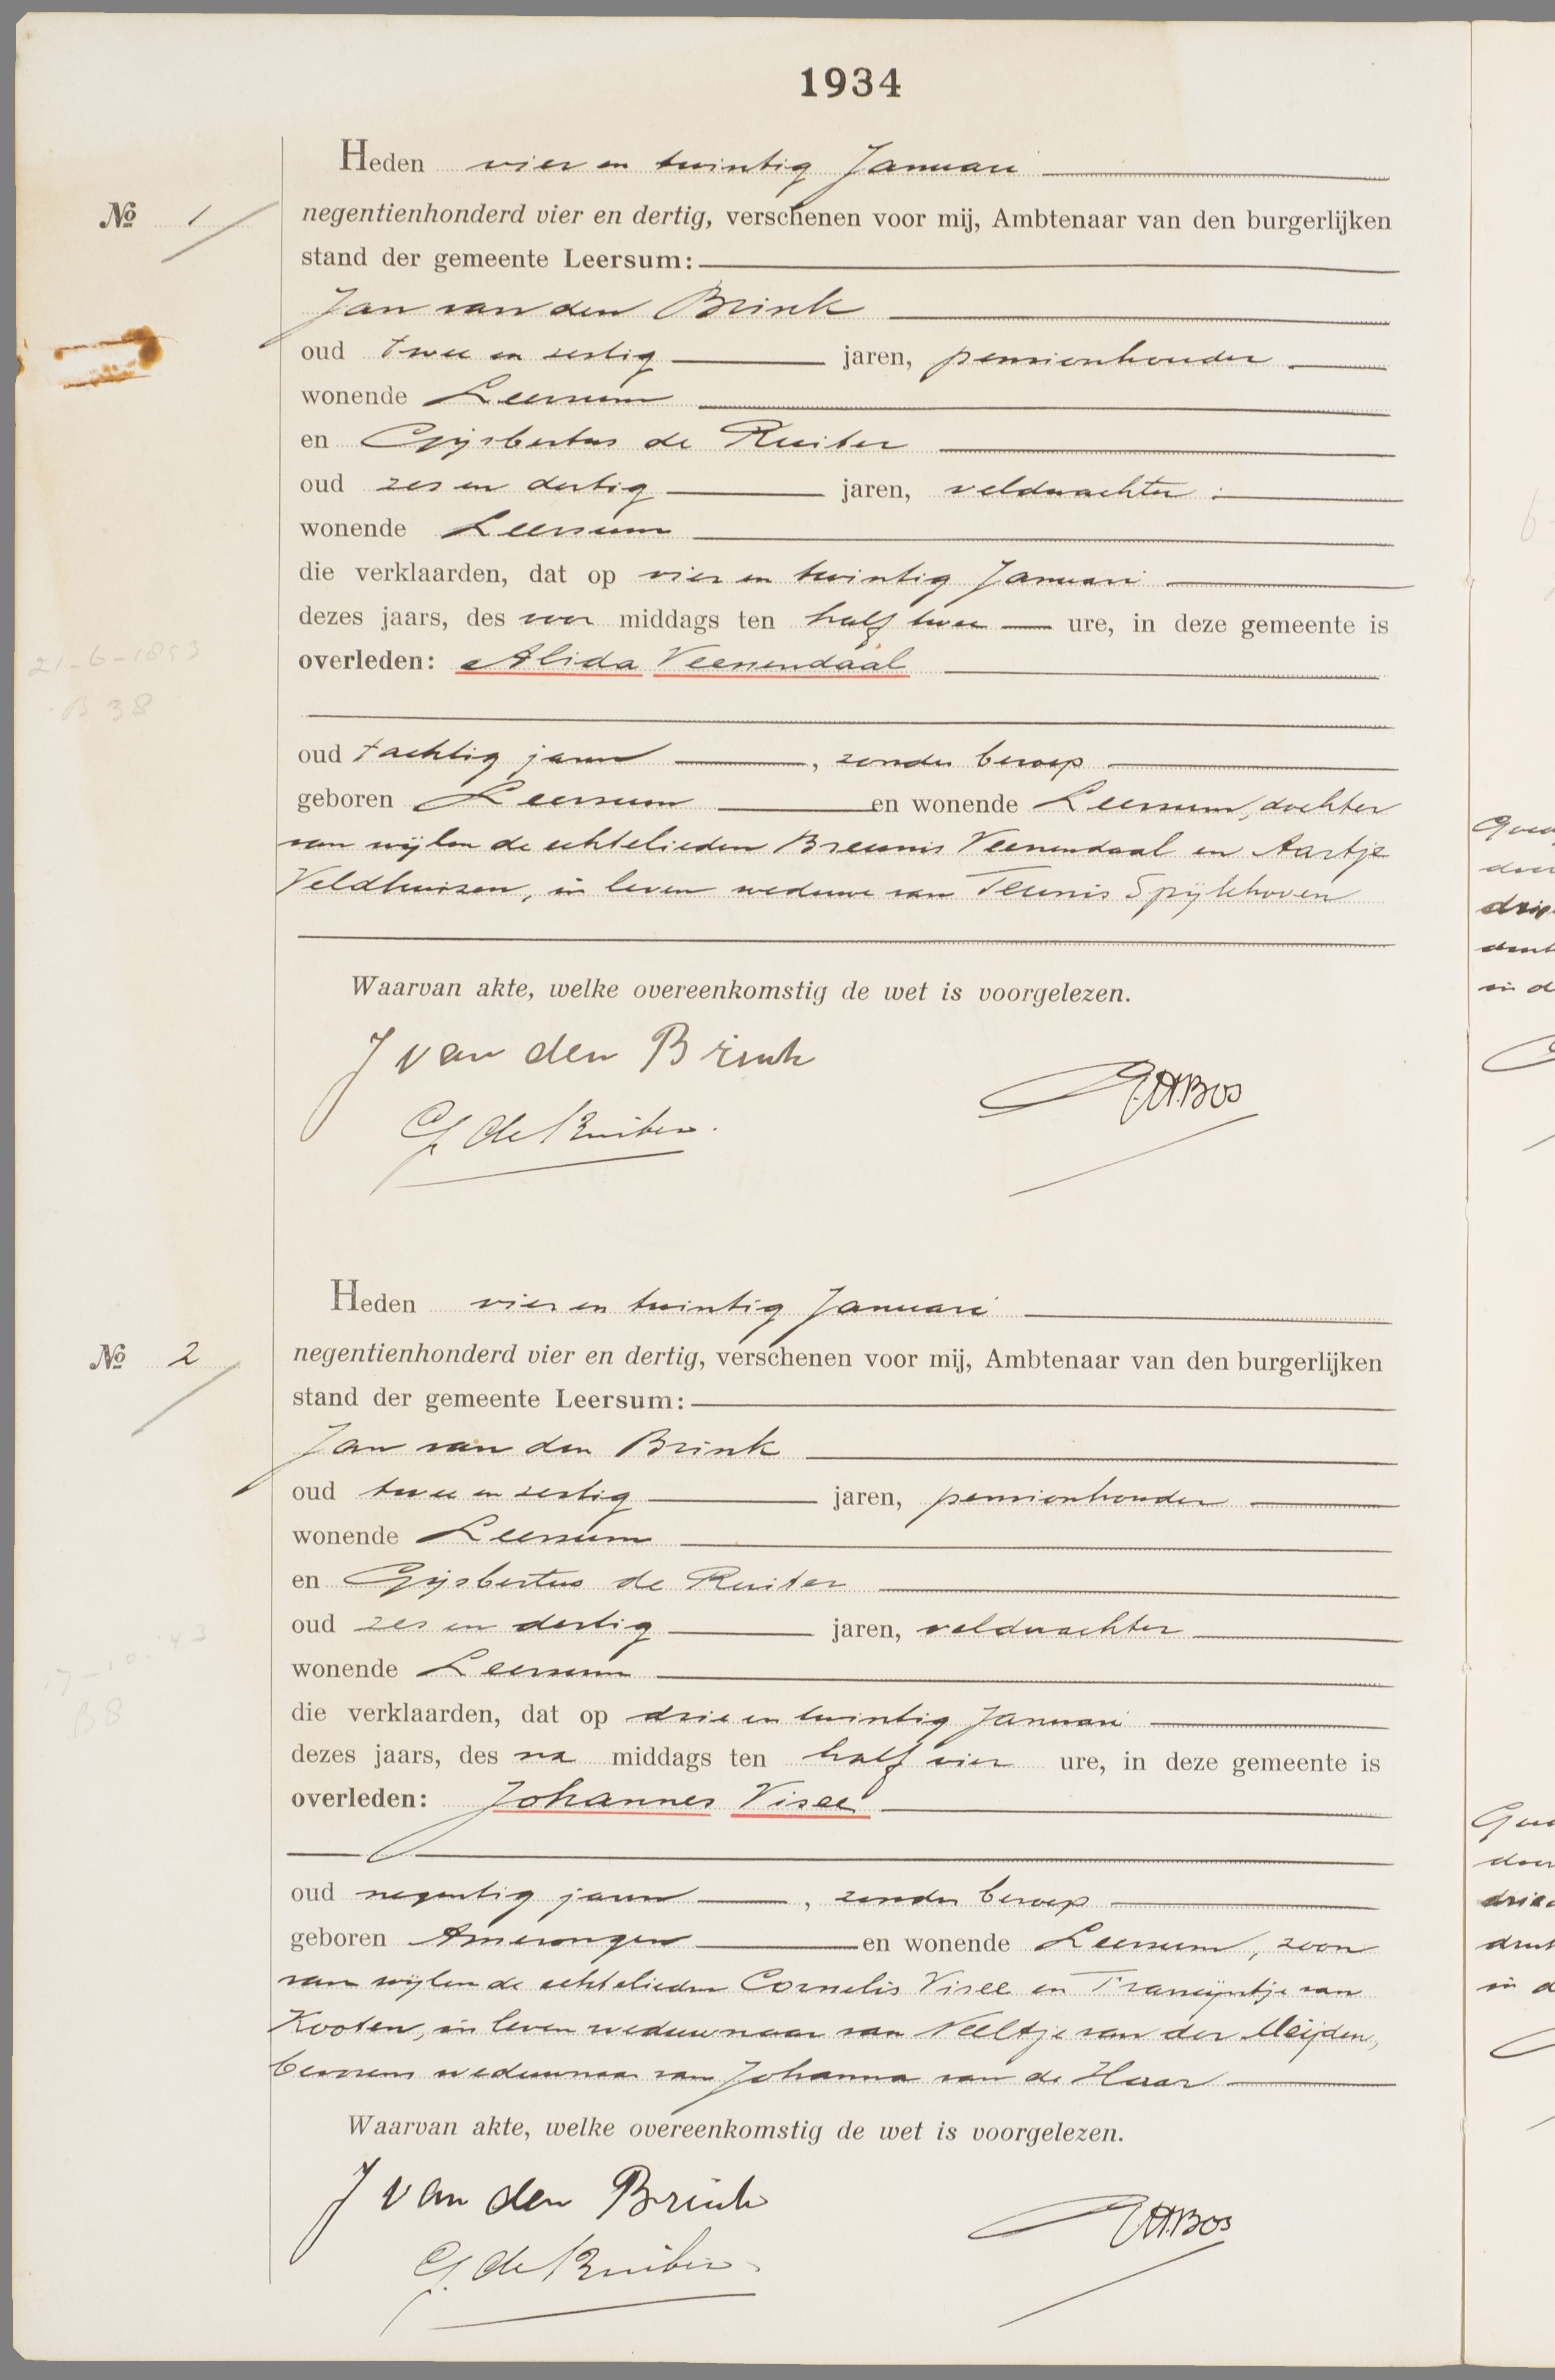 1934
Heden vier en twintig Januari
No 1
negentienhonderd vier en dertig, verschenen voor mij, Ambtenaar van den burgerlijken
stand der gemeente Leersum:
Jan van den Brink
oud twee en zestig jaren, pensionhouder
wonende Leersum
en Gijsbertus de Ruiter
oud zes en dertig jaren, veldwachter
wonende Leersum
die verklaarden, dat op vier en twintig Januari
dezes jaars, des voor middags ten half twee ure, in deze gemeente is
21-6-1853
overleden: Alida Veenendaal
B 38
oud tachtig jaren, zonder beroep
geboren Leersum en wonende Leersum, dochter
van wijlen de echtelieden Breunis Veenendaal en Aartje
Veldhuizen, in leven weduwe van Teunis Spijkhoven
Waarvan akte, welke overeenkomstig de wet is voorgelezen.
J van den Brink
G de Ruiter.
Bos
Heden vier en twintig Januari
No 2
negentienhonderd vier en dertig, verschenen voor mij, Ambtenaar van den burgerlijken
stand der gemeente Leersum:
Jan van den Brink
oud twee en zestig jaren, pensionhouder
wonende Leersum
en Gijsbertus de Ruiter
oud zes en dertig jaren, veldwachter
wonende Leersum
die verklaarden, dat op drie en twintig Januari
B8
dezes jaars, des na middags ten half vier ure, in deze gemeente is
overleden: Johannes Visee
oud negentig jaren, zonder beroep
geboren Amerongen en wonende Leersum, zoon
van wijlen de echtelieden Cornelis Visee en Francijntje van
Kooten, in leven weduwnaar van Neeltje van der Meijden,
bevorens weduwnaar van Johanna van de Haar
Waarvan akte, welke overeenkomstig de wet is voorgelezen.
J van den Brink
G. de Ruiter
Bos